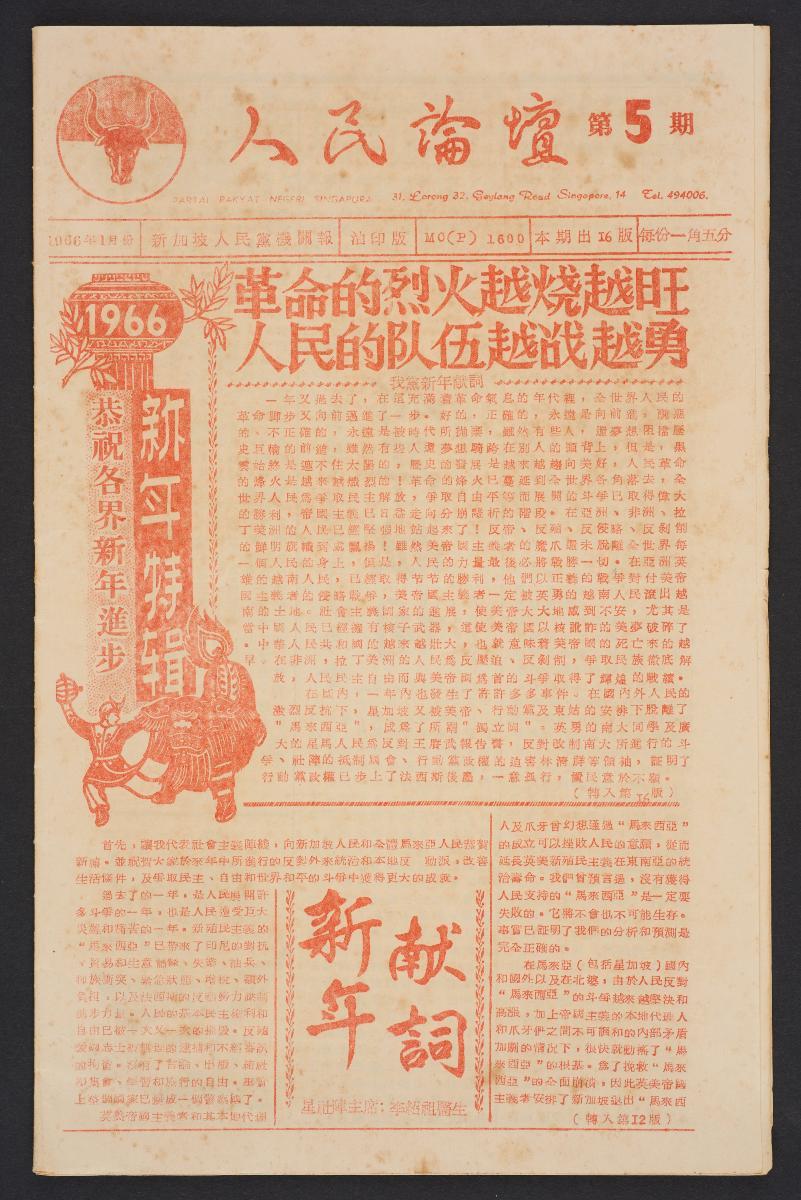 人民論壇 第5期
PARTAI RAKYAT NEGERI SINGAPURA 31, Lorong 32, Geylang Road Singapore, 14 Tel. 494006.
1966年1月份 新加坡人民黨機關報 油印版 MC(P) 1600 本期出16版 每份一角五分
革命的烈火越烧越旺
人民的队伍越战越勇
1966
新年特辑
恭祝各界新年進步
我黨新年献詞
一年又過去了，在這充滿着革命氣息的年代裡，全世界人民的
革命脚步又向前邁進了一步。好的，正確的，永遠是向前進，腐惡
的、不正確的，永遠是被時代所拋棄，雖然有些人，還夢想阻擋歷
史巨輪的前進，雖然有些人還夢想騎跨在別人的頭背上，但是，黑
雲始終是遮不住太陽的，歷史的發展是越來越趨向美好，人民革命
的烽火是越來越熾烈的！革命的烽火已蔓延到全世界各角落去，全
世界人民為爭取民主解放，爭取自由平等而展開的斗爭已取得偉大
的勝利，帝國主義已日益走向分崩離析的階段。在亞洲、非洲、拉
丁美洲的人民已經堅强地站起來了！反帝、反殖、反侵略、反剝削
的鮮明旗幟到處飄揚！雖然美帝國主義者的魔爪還未脫離全世界每
一個人民的身上，但是，人民的力量最後必將戰勝一切。在亞洲英
雄的越南人民，已經取得节节的勝利，他們以正義的戰爭對付美帝
國主義者的侵略戰爭，美帝國主義者一定被英勇的越南人民滾出越
南的土地。社會主義國家的進展，使美帝大大地感到不安，尤其是
當中國人民已經擁有核子武器，這使美帝國以核訛詐的美夢破碎了
。中華人民共和國的越來越壯大，也就意味着美帝國的死亡來的越
早。在非洲，拉丁美洲的人民為反壓迫、反剝削，爭取民族徹底解
放，人民民主自由而與美帝國為首的斗爭取得了輝煌的戰績。
在區内，一年内也發生了許許多多事件。在國内外人民的
激烈反抗下，星加坡又被英帝、行動黨及東姑的安排下脫離了
“馬來西亞”，成爲了所謂“獨立國”。英勇的南大同學及廣
大的星馬人民爲反對王賡武報告書，反對改制南大所進行的斗
爭、社陣的抵制國會、行動黨政權的迫害林清祥等領袖，証明了
行動黨政權已步上了法西斯後塵，一意孤行，置民意於不顧。
（轉入第15版）
首先，讓我代表社會主義陣綫，向新加坡人民和全體馬來亞人民恭賀
新禧。並祝賀大家於來年中所進行的反對外來統治和本地反 動派，改善
生活條件，及爭取民主、自由和世界和平的斗爭中獲得更大的成就。
過去了的一年，是人民展開許
多斗爭的一年，也是人民遭受巨大
災難和痛苦的一年。新殖民主義的
“馬來西亞”已帶來了印尼的對抗
、貿易和生意蕭條、失業、徵兵、
種族衝突、緊急狀態、增稅、額外
進步力量。人民的基本民主權利和
自由已被一次又一次的摧毀。反殖
英美帝國主義者和其本地代理
新年
献詞
星社陣主席：李紹祖醫生
人及爪牙曾幻想通過“馬來西亞”
的成立可以挫敗人民的意願，從而
延長英美新殖民主義在東南亞的統
治壽命。我們曾預言過，沒有獲得
人民支持的“馬來西亞”是一定要
失敗的。它將不會也不可能生存。
事實已証明了我們的分析和預測是
完全正確的。
在馬來亞（包括星加坡）國内
和國外以及在北婆，由於人民反對
“馬來西亞”的斗爭越來越堅決和
高漲，加上帝國主義的本地代理人
和爪牙們之間不可調和的内部矛盾
加劇的情况下，很快就動摇了“馬
來西亞”的根基。爲了挽救“馬來
西亞”的全面崩潰，因此英美帝國
主義者安排了新加坡退出“馬來西
（轉入第12版）